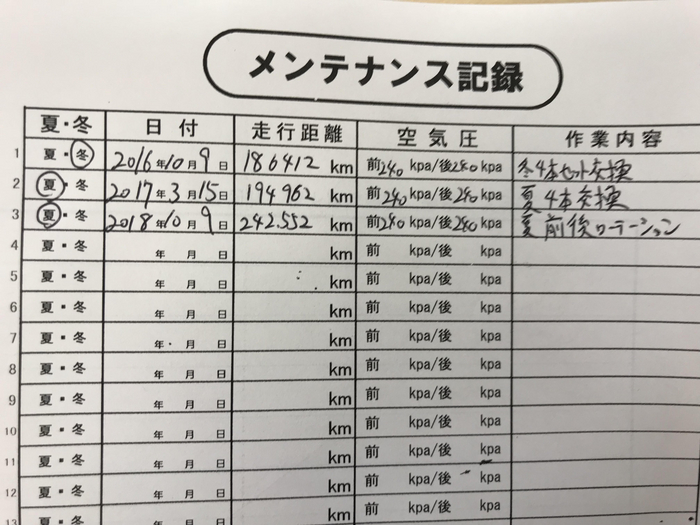 メンテナンス記録
夏・冬 日付 走行距離 空気圧 作業内容
1 夏・冬 2016年10月9日 186412 km 前240 kpa/後240 kpa 冬4本セット交換
2 夏・冬 2017年3月15日 194962 km 前240 kpa/後240 kpa 夏4本交換
3 夏・冬 2018年10月9日 242.552 km 前240 kpa/後240 kpa 夏 前後ローテーション
4 夏・冬 年 月 日 km 前 kpa/後 kpa
5 夏・冬 年 月 日 km 前 kpa/後 kpa
6 夏・冬 年 月 日 km 前 kpa/後 kpa
7 夏・冬 年 月 日 km 前 kpa/後 kpa
8 夏・冬 年 月 日 km 前 kpa/後 kpa
9 夏・冬 年 月 日 km 前 kpa/後 kpa
10 夏・冬 年 月 日 km 前 kpa/後 kpa
11 夏・冬 年 月 日 km 前 kpa/後 kpa
12 夏・冬 年 月 日 km 前 kpa/後 kpa
13 夏・冬 年 月 日 km 前 kpa/後 kpa